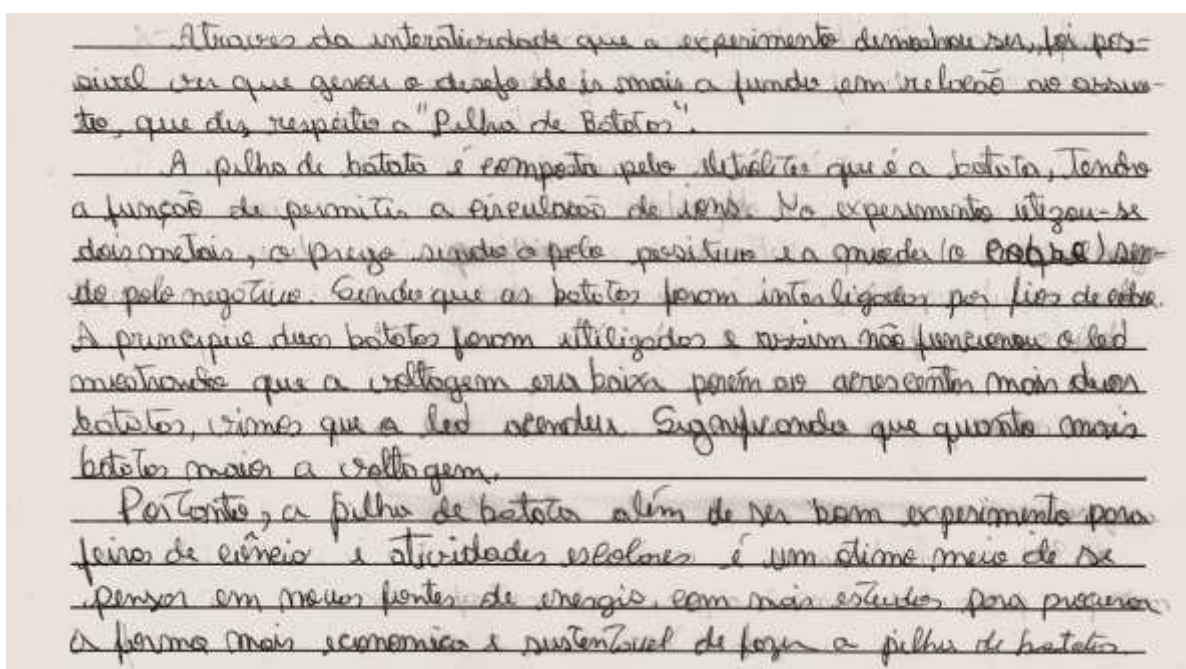 Através da interatividade que o experimento demostrou ser, foi pos-
sivel ver que gerou o desafo de ir mais a fundo em relação ao assun-
to, que diz respeito a "Pilha de Batatas".
A pilha de batata é composta pelo eletrólitos que é a batata, Tendo
a função de permitir a circulação de íons. No experimento utizou-se
dois metais, o prego sendo o polo positivo e a moeda (o cobre) sen-
do polo negativo. Sendo que as batatas foram interligadas por fios de cobre.
A principio duas batatas foram utilizadas e assim não funcionou o led
mostrando que a voltagem era baixa porém ao acrescentar mais duas
batatas, vimos que o led acendeu. Significando que quanto mais
batatas maior a voltagem.
Portanto, a pilha de batata além de ser bom experimento para
feira de ciência e atividades escolares é um ótimo meio de se
pensar em novas fontes de energia, com mais estudos para procurar
a forma mais economica e sustentavel de fazer a pilha de batatas.